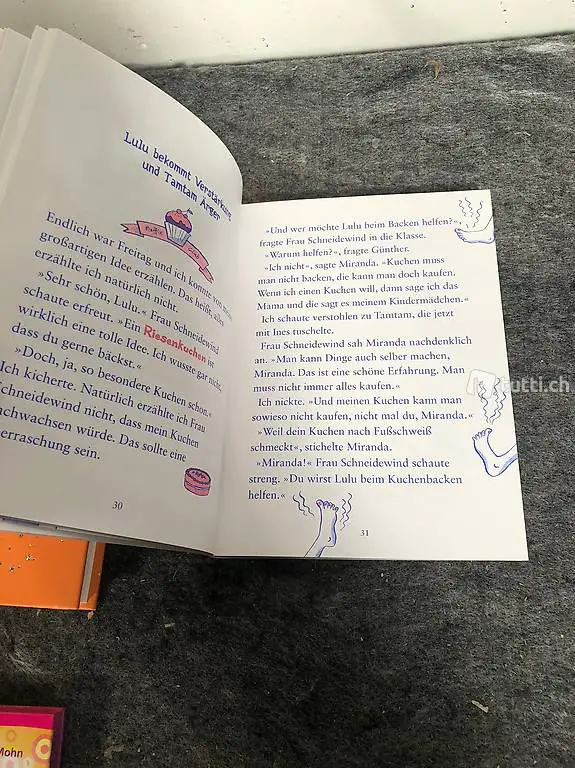 Lulu bekommt Verstärkung
und Tamtam Ärger
Endlich war Freitag und ich konnte von meiner
großartigen Idee erzählen. Das heißt, alles
erzählte ich natürlich nicht.
»Sehr schön, Lulu.« Frau Schneidewind
schaute erfreut. »Ein Riesenkuchen ist
wirklich eine tolle Idee. Ich wusste gar nicht,
dass du gerne bäckst.«
»Doch, ja, so besondere Kuchen schon.«
Ich kicherte. Natürlich erzählte ich Frau
Schneidewind nicht, dass mein Kuchen
nachwachsen würde. Das sollte eine
erraschung sein.
30
»Und wer möchte Lulu beim Backen helfen?«,
fragte Frau Schneidewind in die Klasse.
»Warum helfen?«, fragte Günther.
»Ich nicht«, sagte Miranda. »Kuchen muss
man nicht backen, die kann man doch kaufen.
Wenn ich einen Kuchen will, dann sage ich das
Mama und die sagt es meinem Kindermädchen.«
Ich schaute verstohlen zu Tamtam, die jetzt
mit Ines tuschelte.
Frau Schneidewind sah Miranda nachdenklich
an. »Man kann Dinge auch selber machen,
Miranda. Das ist eine schöne Erfahrung. Man
muss nicht immer alles kaufen.«
Ich nickte. »Und meinen Kuchen kann man
sowieso nicht kaufen, nicht mal du, Miranda.«
»Weil dein Kuchen nach Fußschweiß
schmeckt«, stichelte Miranda.
»Miranda!« Frau Schneidewind schaute
streng. »Du wirst Lulu beim Kuchenbacken
helfen.«
31
tutti.ch
Mohn